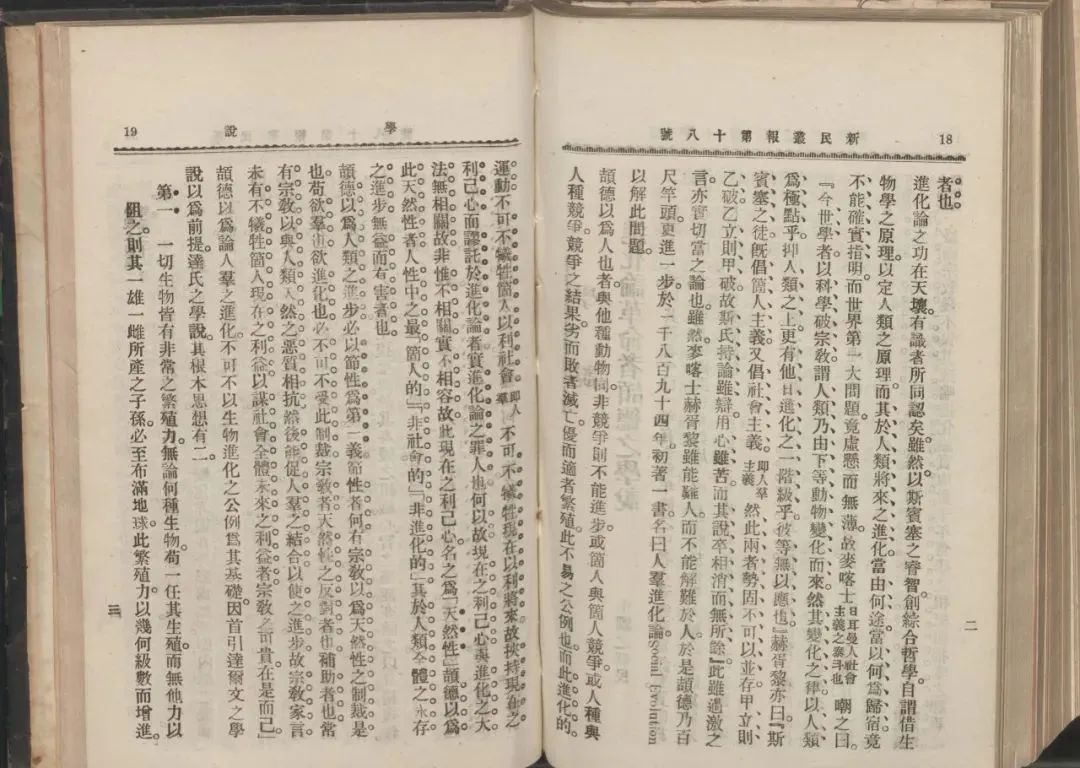 新民叢報第十八號
18
二
者也。
進化論之功在天壤。有識者所同認矣。雖然以斯賓塞之睿智創綜合哲學。自謂借生
物學之原理。以定人類之原理。而其於人類將來之進化。當由何途。當以何爲歸宿。竟
不能確實指明。而世界第一大問題。竟虛懸而無薄。故麥喀士日耳曼人社會主義之泰斗也嘲之曰。
『今世學者以科學破宗敎。謂人類乃由下等動物變化而來。然其變化之律。以人類
爲極點乎。抑人類之上更有他日進化之一階級乎。彼等無以應也』赫胥黎亦曰『斯
賓塞之徒旣倡箇人主義。又倡社會主義。即人羣主義然此兩者勢固不可以並存。甲立則
乙破。乙立則甲破。故斯氏持論雖辯。用心雖苦。而其說卒相消而無所餘』此雖過激之
言。亦實切當之論也。雖然麥喀士赫胥黎雖能難人。而不能解難於人。於是頡德乃百
尺竿頭。更進一步。於一千八百九十四年初著一書。名曰人羣進化論。Social Evolution
以解此問題。
頡德以爲人也者與他種動物同。非競爭則不能進步。或箇人與箇人競爭。或人種與
人種競爭。競爭之結果。劣而敗者滅亡。優而適者繁殖。此不易之公例也。而此進化的
學說
19
三
運動。不可不犧牲箇人以利社會即人羣不可不犧牲現在以利將來。故挾持現在之
利己心。而謬託於進化論者。實進化論之罪人也。何以故。現在之利己心與進化之大
法無相關故。非惟不相關。實不相容故。此現在之利己心名之爲「天然性」頡德以爲
此天然性者人性中之最「箇人的」「非社會的」「非進化的」其於人類全體之永存
之進步無益而有害者也。
頡德以爲人類之進步必以節性爲第一義。節性者何。有宗敎以爲天然性之制裁是
也。苟欲羣也。欲進化也。必不可不受此制裁。宗敎者天然性之反對者也。補助者也。常
有宗敎以與人類天然之惡質相抗。然後能促人羣之結合。以使之進步。故宗敎家言
未有不犧牲箇人現在之利益。以謀社會全體未來之利益者。宗敎之可貴在是而已。
頡德以爲論人羣之進化。不可不以生物進化之公例爲其基礎。因首引達爾文之學
說以爲前提。達氏之學說。其根本思想有二。
第一　一切生物皆有非常之繁殖力。無論何種生物。苟一任其生殖而無他力以
阻之。則其一雄一雌所產之子孫。必至布滿地球。此繁殖力以幾何級數而增進。